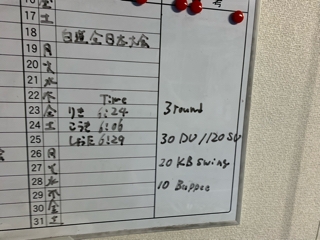 16 金
17 土
18 自衛隊全日本大会
19 月
20 火
21 水
22 木 Time
23 金 りき 6:24
24 土 こうき 6:06
25 6:29
26 月
27 火
28 水
29 木
30 金
31 土
号
3 round
30 DU / 120 SU
20 KB swing
10 Burpee